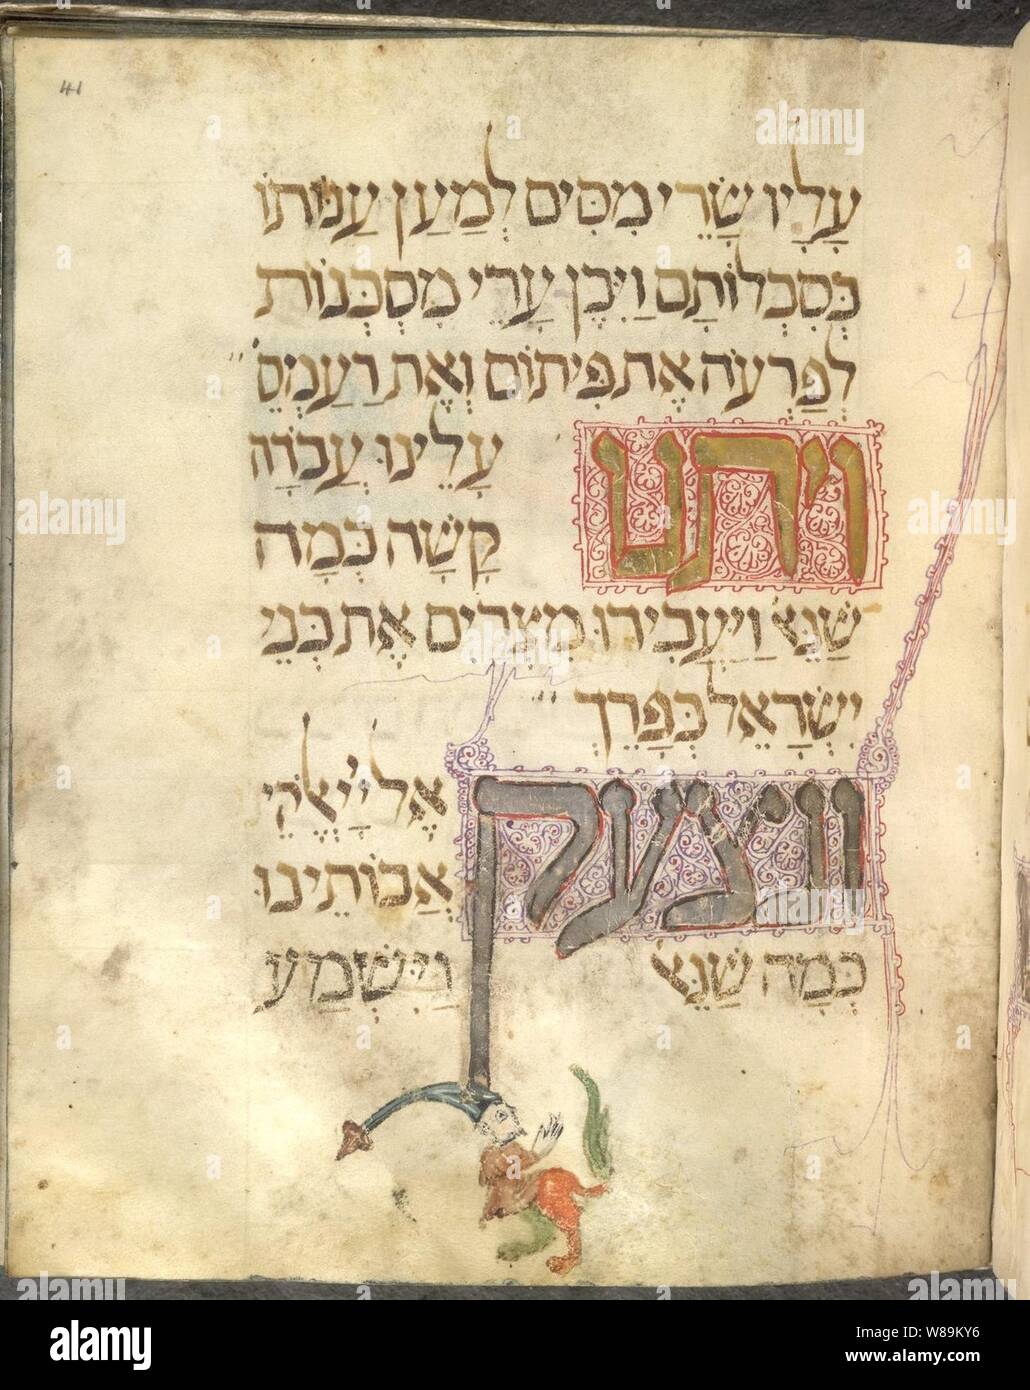 41
עָלָיו שָׂרֵי מִסִּים לְמַעַן עַנּוֹתוֹ
בְּסִבְלוֹתָם וַיִּבֶן עָרֵי מִסְכְּנוֹת
לְפַרְעֹה אֶת פִּיתוֹם וְאֶת רַעַמְסֵס
ויתנו עָלֵינוּ עֲבוֹדָה
קָשָׁה כְּמָה
שֶׁנֶּא וַיַּעֲבִידוּ מִצְרַיִם אֶת בְּנֵי
יִשְׂרָאֵל בְּפָרֶךְ
וניצעק אֶל יְיָ אֱלֹקֵי
אֲבוֹתֵינוּ
כְּמָה שֶׁנֶּא וַיִּשְׁמַע
alamy
Image ID: W89KY6
www.alamy.com